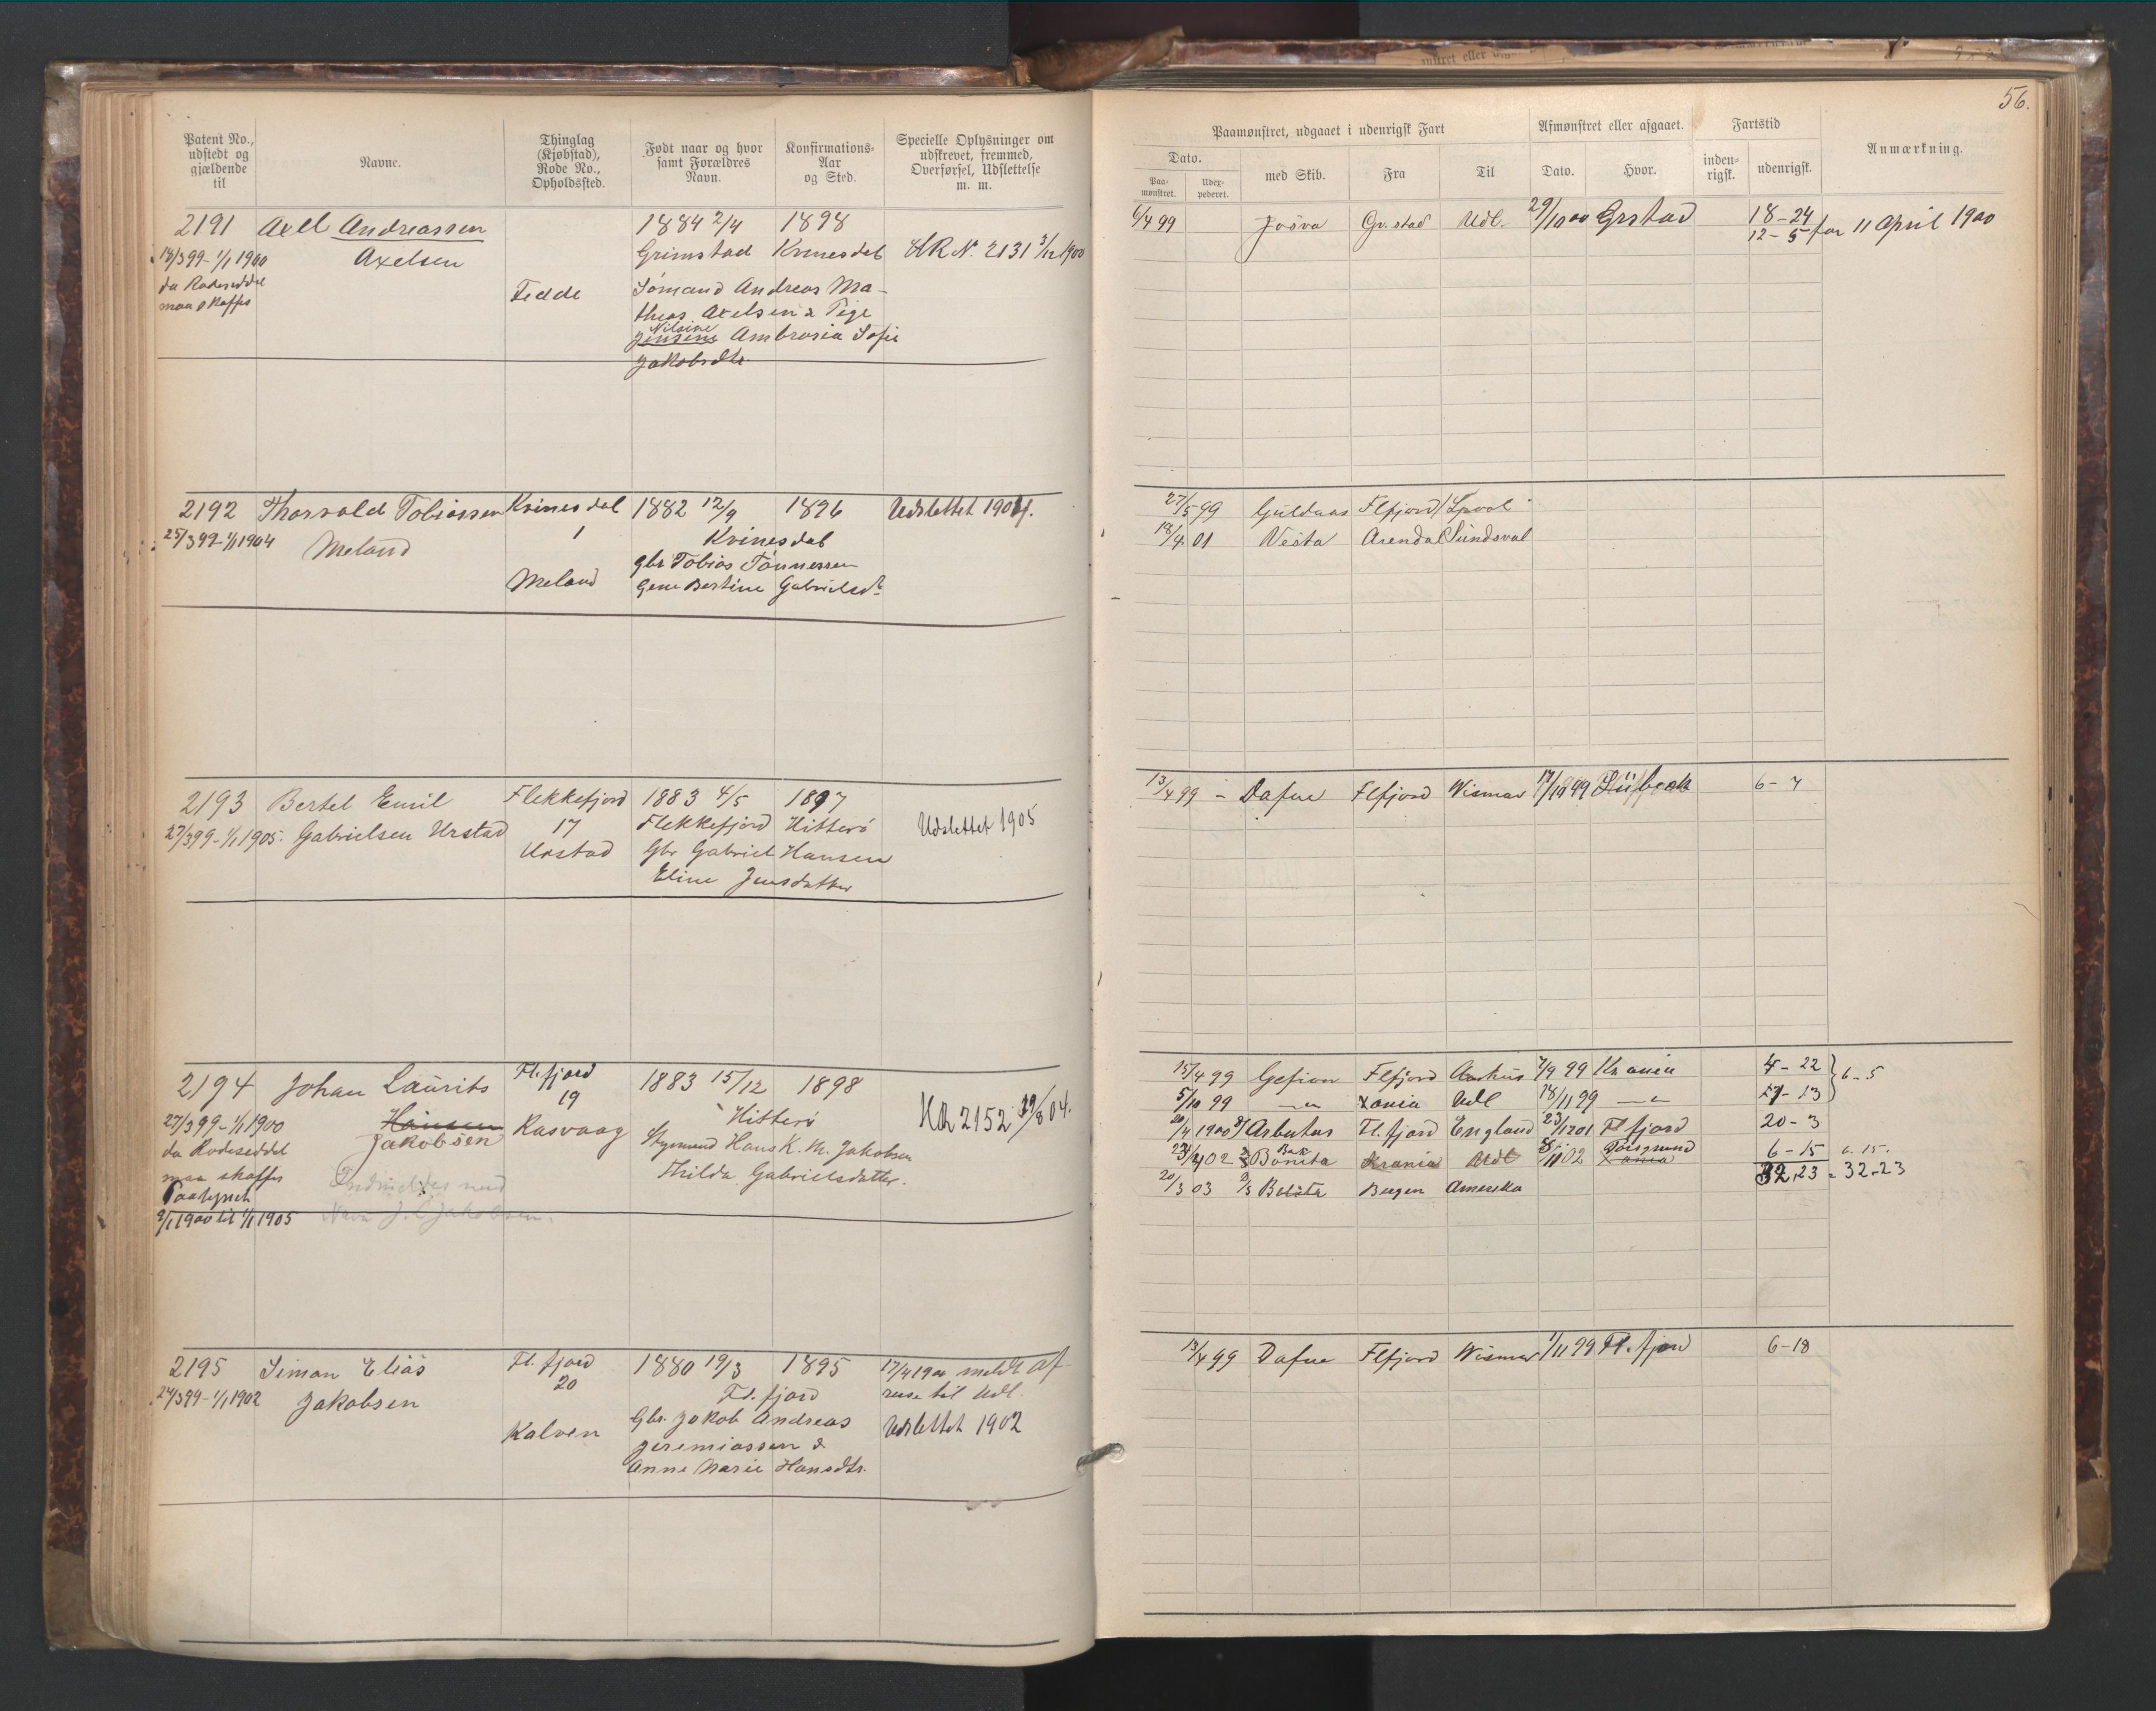 Patent No., udstedt og gjældende til
Navne.
Thinglag (Kjøbstad), Rode No., Opholdssted.
Født naar og hvor samt Forældres Navn.
Konfirmations-Aar og Sted.
Specielle Oplysninger om udskrevet, fremmed, Overførsel, Udslettelse m. m.
2191 Axel Andreassen 1884 2/4 1898
18/3 99-1/1 1900 Axelsen Grimstad Kvinesdal HR No. 2131 3/12 1900
da Rodeseddel Fedde Sømand Andreas Ma-
maa skaffes theas Axelsen & Pige
Nilsine
Jensine Ambrosia Sofie
Jakobsdtr.
2192 Thorvald Tobiassen Kvinesdal 1882 12/9 1896 Udslettet 1904.
25/3 99-1/1 1904 Meland 1 Kvinesdal
Gbr Tobias Tønnessen
Meland Gene Bertine Gabrielsdr
2193 Bertel Emil Flekkefjord 1883 4/5 1897
27/3 99-1/1 1905. Gabrielsen Urstad 17 Flekkefjord Hitterö Udslettet 1905
Urstad Gbr Gabriel Hansen
Eline Jensdatter
2194 Johan Laurits Fl.fjord 1883 15/12 1898
19
27/3 99-1/1 1900 Hansen Hitterö KR 2152 19/8 04.
da Rodeseddel Jakobsen Rasvaag Styrmand Hans K. M. Jakobsen
maa skaffes Thilda Gabrielsdatter.
Paategnet Indmeldes med
9/1 1900 til 1/1 1905 Navn J. L. Jakobsen.
2195 Simon Elias Fl. fjord 1880 19/3 1895 17/4 1900 meldt af
24/3 99-1/1 1902 Jakobsen 20 Fl. fjord reise til Udl.
Kalven Gbr. Jakob Andreas Udslettet 1902
Jeremiassen &
Anne Marie Hansdtr.
56.
Paamønstret, udgaaet i udenrigsk Fart
Afmønstret eller afgaaet.
Fartstid
Anmærkning.
Dato.
Paa-mønstret.
Udex-pederet.
med Skib.
Fra
Til
Dato.
Hvor.
inden-rigsk.
udenrigsk.
6/4 99 Josva Gr.stad Udl. 29/10 00 Grstad 18-24
12-5 før 11 April 1900
27/5 99 Guldaas Flfjord Lpool
18/4 01 Vesta Arendal Sundsval
13/4 99 - Dafne Flfjord Wismar 17/10 99 Lübeck 6-4
15/4 99 Gefion Flfjord Aarhus 7/9 99 Kr.ania 4-22
6-5
5/10 99 -"- Xania Udl 18/11 99 -"- 1-13
20/4 1900 Arbutus Fl.fjord England 23/12 01 Fl fjord 20-3
Bark
Bonita Krania Udl 8/11 02 Porsgrund 6-15 6.15.
Xania
20/3 03 Bonita Bergen Amerika 32.23 = 32-23
13/4 99 Dafne Flfjord Wismar 1/11 99 Fl.fjord 6-18